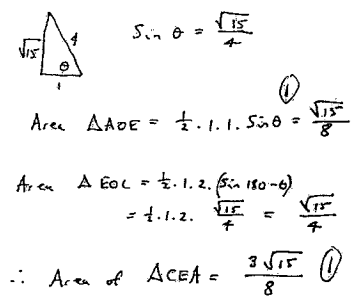 √15 4 Sin θ = √15/4
θ
1
①
Area △AOE = ½ . 1 . 1 . Sin θ = √15/8
Area △ EOC = ½ . 1 . 2 . (Sin 180-θ)
= ½ . 1 . 2 . √15/4 = √15/4
∴ Area of △CEA = 3√15/8 ①